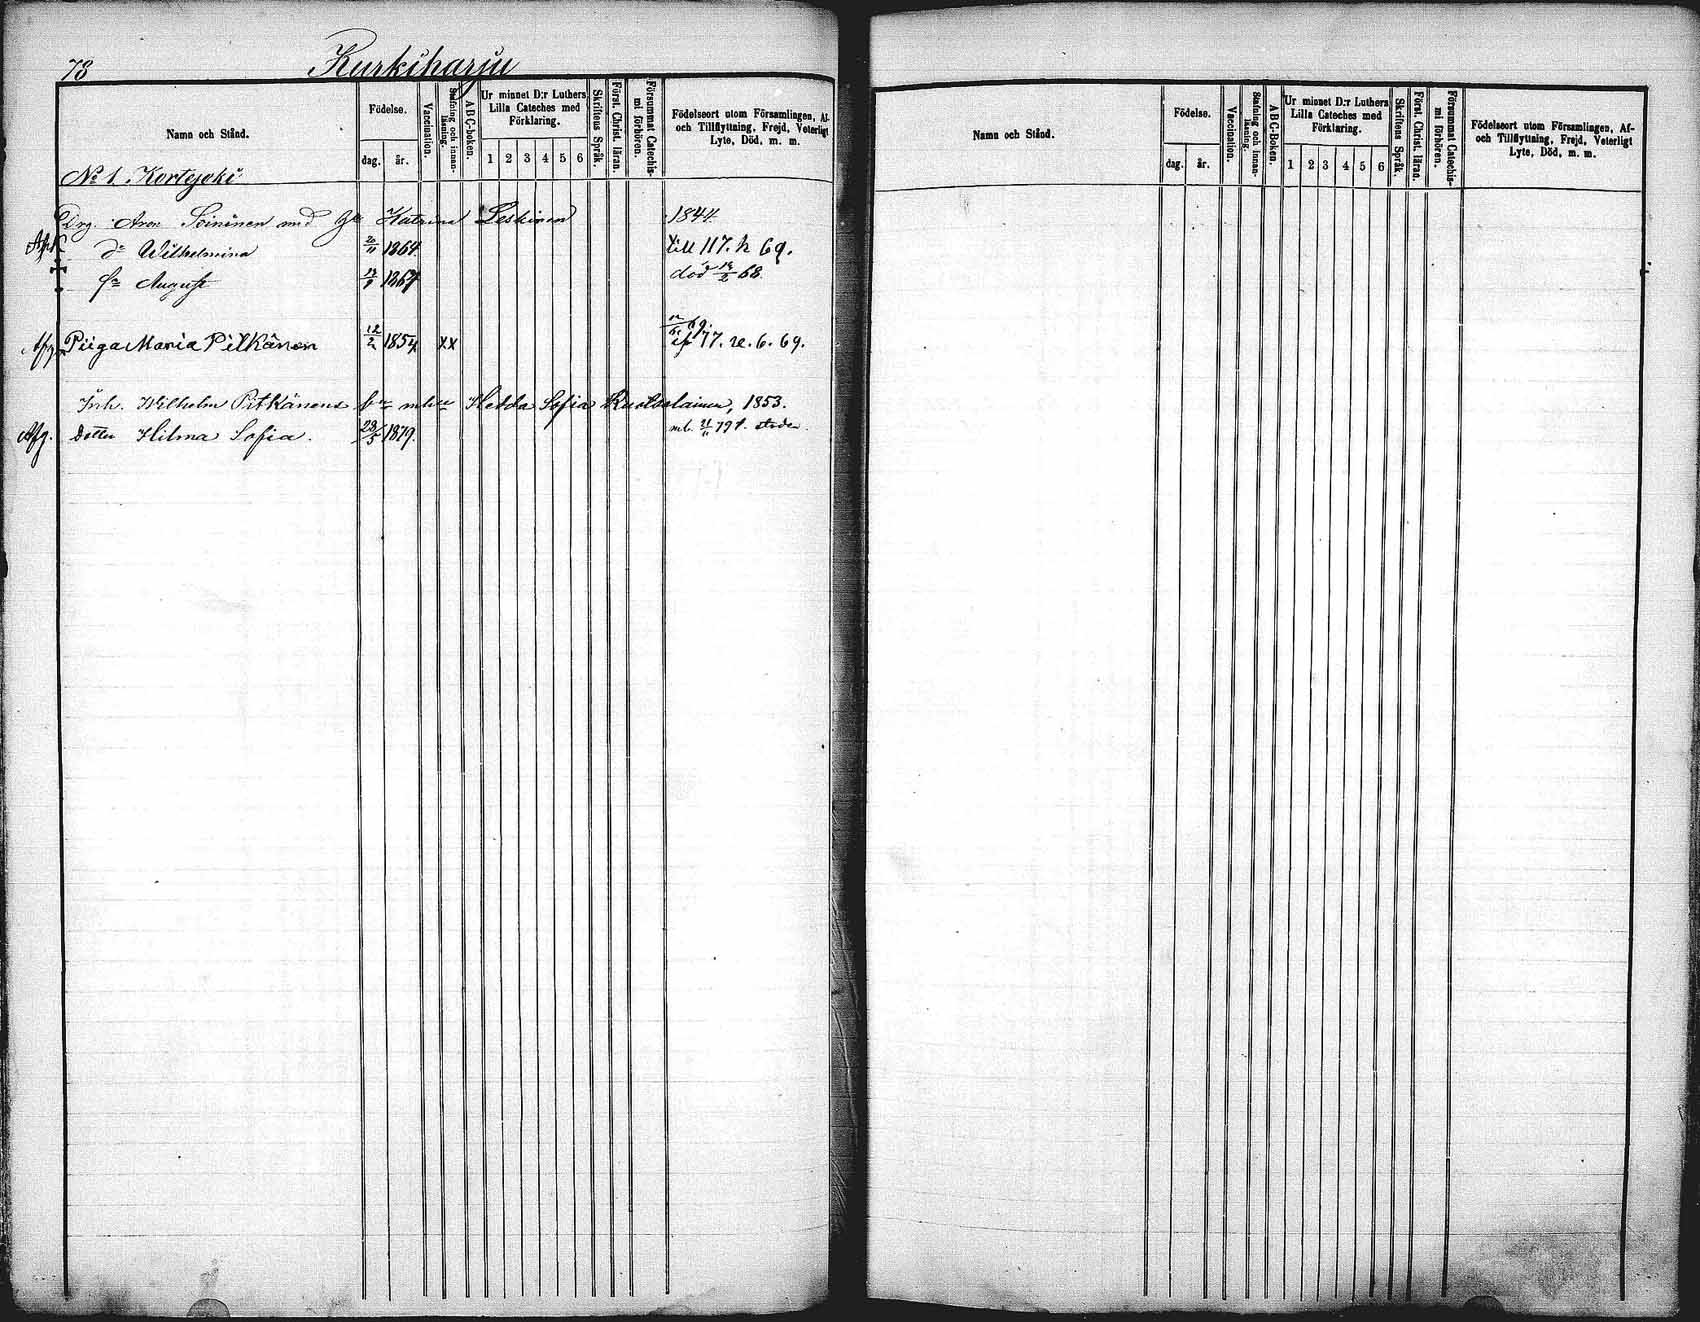 78
Kurkiharju
Namn och Stånd.
Födelse.
dag. år.
Vaccination.
Stafning och innanläsning.
ABC-boken.
Ur minnet D:r Luthers Lilla Cateches med Förklaring.
1 2 3 4 5 6
Skriftens Språk.
Först. Christ. läran.
Försummat Catechismi förhören.
Födelseort utom Församlingen, Af- och Tillflyttning, Frejd, Veterligt Lyte, Död, m. m.
No 1. Kortejoki
Drg. Aron Soininen med Katrina Leskinen 1844
Dr Wilhelmina 1864 till 117. h 69.
Sn August 1867 död 68
Afg. Piiga Maria Pitkänen 12/2 1854 xx 17. 6. 69.
Inh. Wilhelm Pitkänens Hedda Sofia 1853.
Afg. Dotter Hilma Sofia. 28/5 1879. 79 t. staden
Namn och Stånd.
Födelse.
dag. år.
Vaccination.
Stafning och innanläsning.
ABC-Boken.
Ur minnet D:r Luthers Lilla Cateches med Förklaring.
1 2 3 4 5 6
Skriftens Språk.
Först. Christ. läran.
Försummat Catechismi förhören.
Födelseort utom Församlingen, Af- och Tillflyttning, Frejd, Veterligt Lyte, Död, m. m.